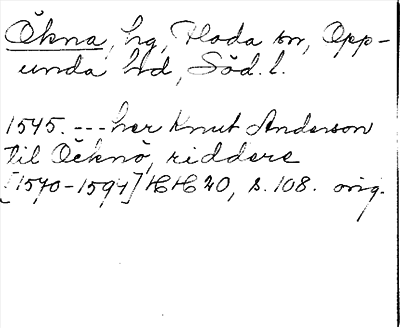 Ökna, hg, Floda sn, Opp-
unda hd, Söd. l.
1545. --- her Knut Anderson
til Öcknö, riddere
[1540-1594] HH 20, s. 108. orig.